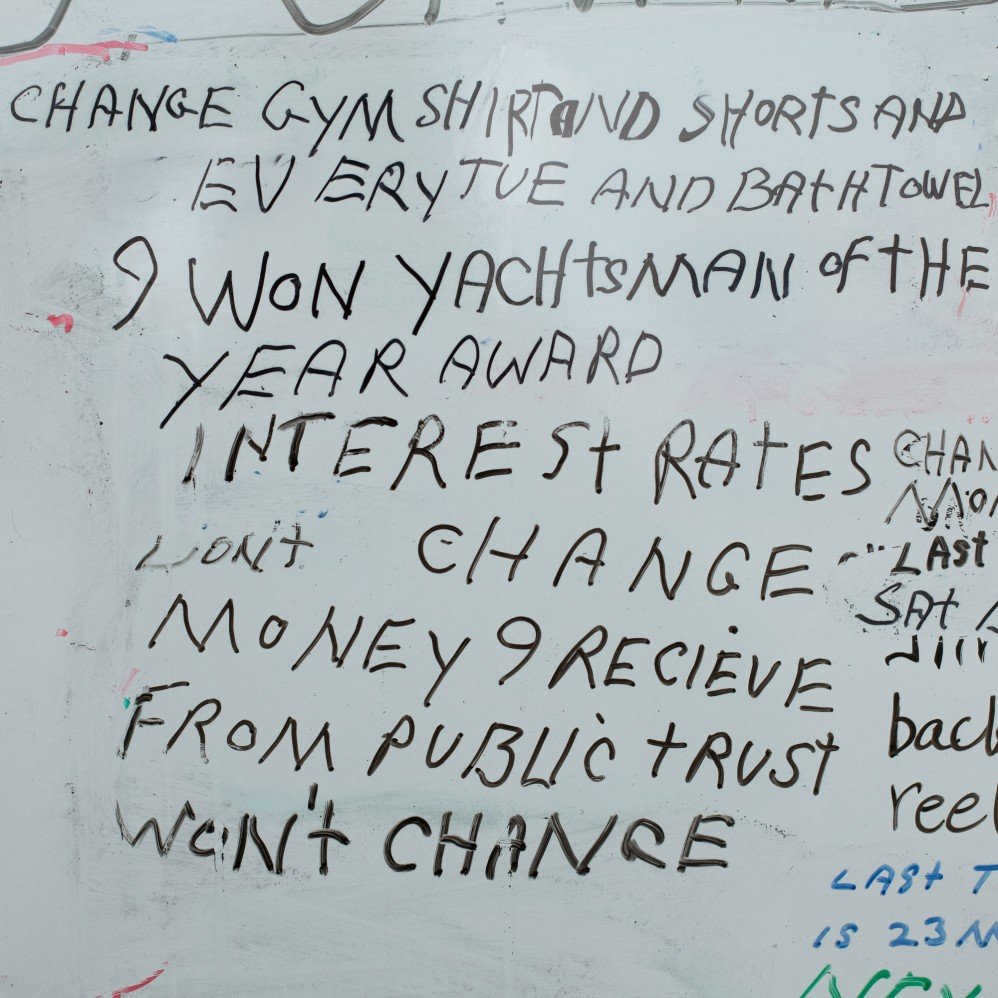 CHANGE GYM SHIRT AND SHORTS AND
EVERY TUE AND BATH TOWEL
9 WON YACHTSMAN OF THE
YEAR AWARD
INTEREST RATES
DON'T CHANGE
MONEY 9 RECIEVE
FROM PUBLIC TRUST
WON'T CHANGE
CHAN
MON
LAST
SAT
back
reel
LAST T
IS 23 M